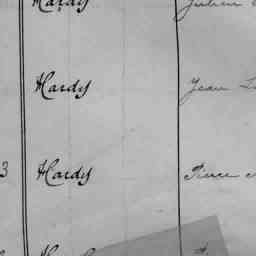 Hardy Julien
Hardy Jean
3 Hardy Pierre